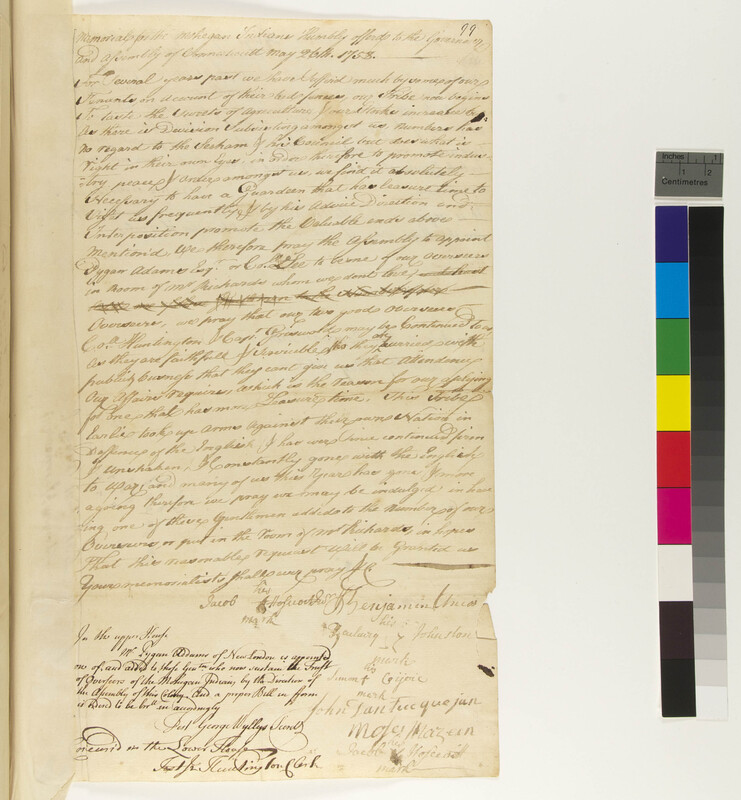 99
Memorial of the Mohegan Indians Humbly offerd to the Governor
and Assembly of Connecticut May 26th. 1758.
For Several years past we have Suffred much by some of our
Tenants on account of their bad fences, our Tribe now begins
To taste the Sweets of Agriculture & our Stocks increase but
As there is Division Subsisting amongst us, numbers has
no regard to the Sachem & his Council but does what is
right in their own Eyes, in order therefore to promote indus-
try peace & order amongst us, we find it absolutely
Necessary to have a Guardian that has leasure time to
Visit us frequently & by his Advice Direction and
Interposition promote the Valuable ends above
mentiond We therefore pray the Assembly to appoint
Pygan Adams Esqr. or Coll. Lee to be one of our overseers
in Room of Mr Richards whom we don't love,
Overseers, we pray that our two good overseers
Coll. Huntington & Capt. Griswold may be Continued to us
As they are faithfull & Servicible, tho they are hurried with
publick business that they cant give us that Attendance
Our Affairs require, which is the reason for our applying
for one that has more Leasure time, This Tribe
Earlie took up arms against their own Nation in
Defence of the English & has ever since continued firm
& unshaken, & Constantly gone with the English
to War, and many of us this Year has gone & more
agoing therefore we pray we may be indulged in have
ing one of these Gentlemen added to the Number of our
Overseers or put in the Room of Mr Richards, in hopes
that this reasonable request will be Granted us
Your memorialists shall ever pray &c
Jacob his Hoscoat
mark
Benjamin Uncas
his
Zachary Johnston
mark
his
Simon Cojoic
mark
John Tantucquejan
Moses Mazeen
Jacob his Hoscoat
mark
In the upper House
Mr. Pygan Adams of New London is appointed
one of, and added to those Gentn. who now sustain the Trust
of Overseers of the Mohegan Indians by the Direction of
the Assembly of this Colony And a proper Bill in form
is Ordrd to be bro't in accordingly
Test George Wyllys Secrety
Concurd in the Lower House
Test Huntington Clerk
Inches
1
1
2
Centimetres